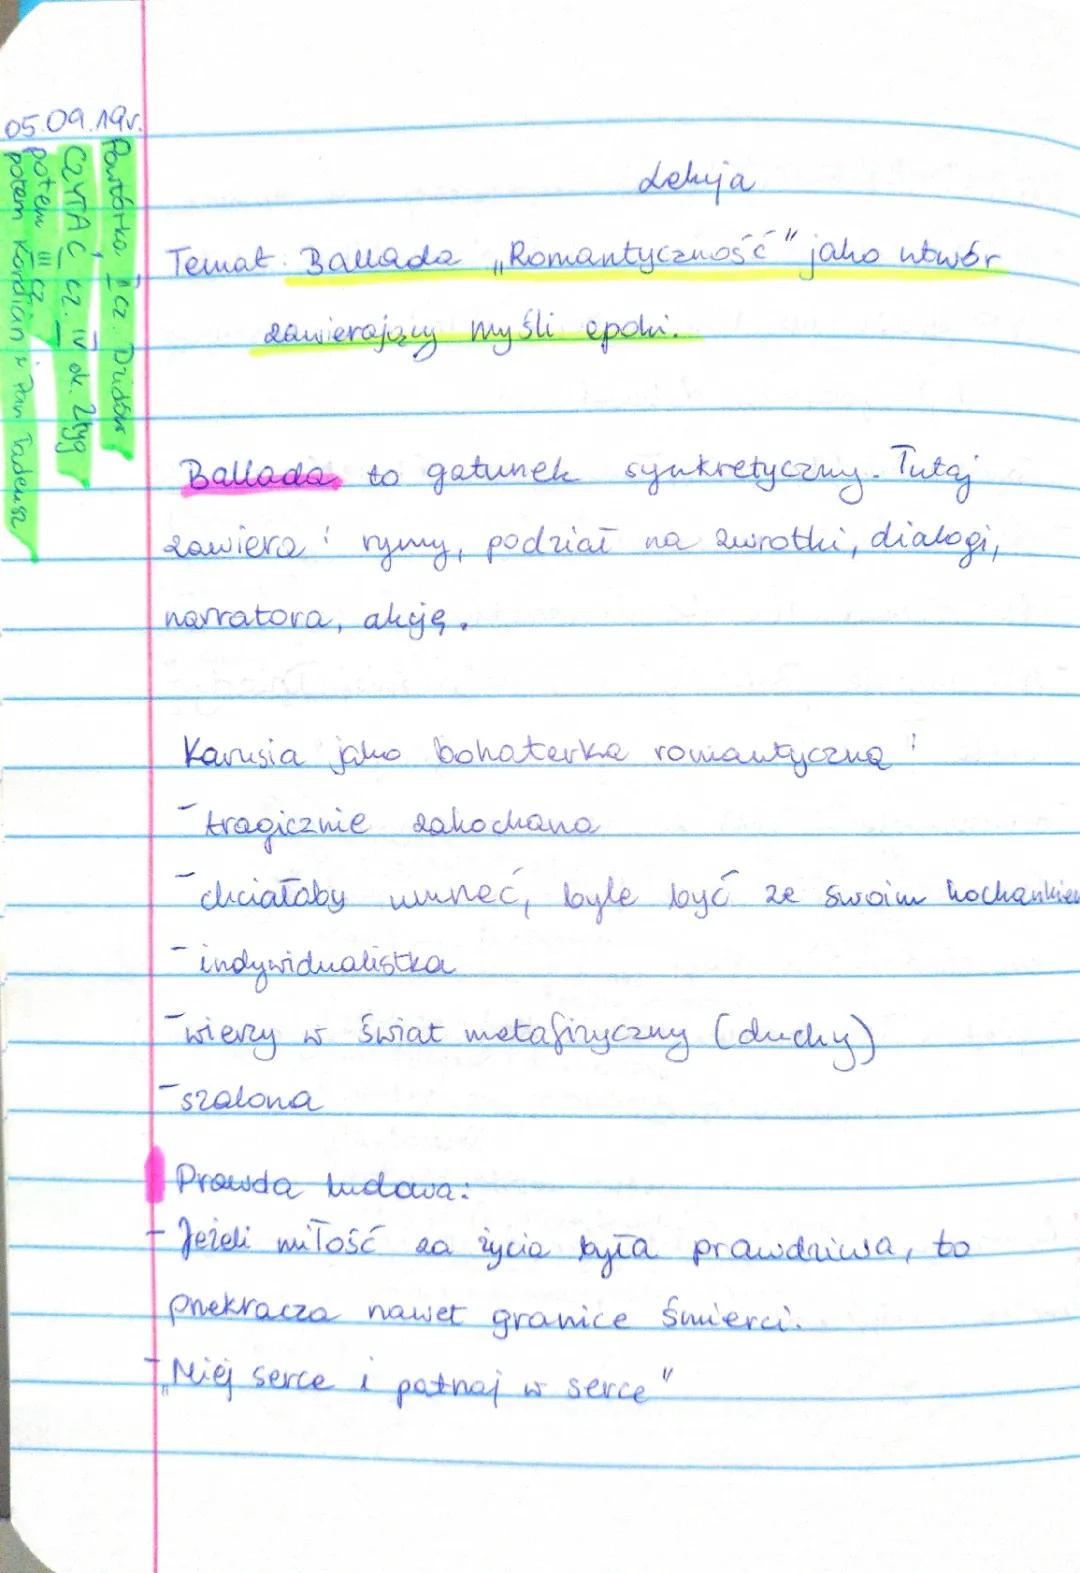 05.09.19r.
Powtórka II cz. Dziadów
CZYTAĆ cz. IV ok. 2tyg
potem III cz
potem Kordian i Pan Tadeusz
Lekcja
Temat: Ballada „Romantyczność" jako utwór
zawierający myśli epoki.
Ballada to gatunek synkretyczny. Tutaj
zawiera: rymy, podział na zwrotki, dialogi,
narratora, akcję.
Karusia jako bohaterka romantyczna:
- tragicznie zakochana
- chciałaby umrzeć, byle być ze swoim kochankiem
- indywidualistka
- wierzy w świat metafizyczny (duchy)
- szalona
Prawda ludowa:
- Jeżeli miłość za życia była prawdziwa, to
przekracza nawet granice śmierci.
- „Miej serce i patrzaj w serce"